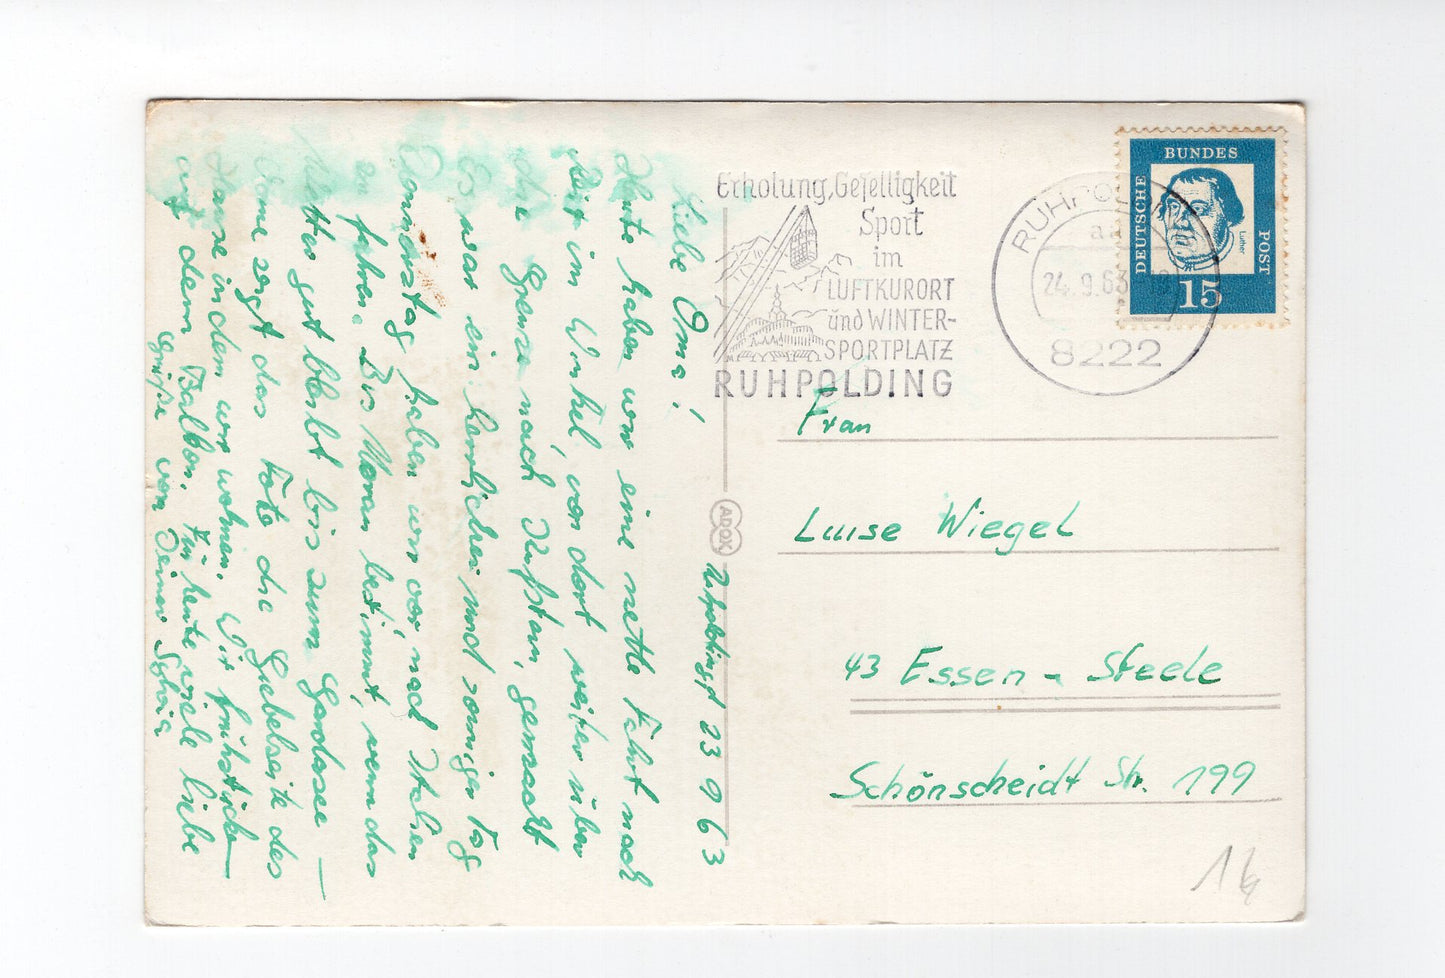 Ruhpolding, d 23 9 63
Liebe Oma!
Heute haben wir eine nette Fahrt nach
Reit im Winkel, von dort weiter über
die Grenze nach Kufstein, gemacht
Es war ein herrlicher und sonniger Tag
Donnerstag haben wir vor nach Italien
zu fahren. Bis Meran bestimmt, wenn das
Wetter gut bleibt bis zum Gardasee –
zeigt das Foto die Giebelseite des
Hause in dem wir wohnen. Wir frühstücken
auf dem Balkon. Für heute viele liebe
Grüße von Deiner
Erholung, Geselligkeit
Sport
im
LUFTKURORT
und WINTER-
SPORTPLATZ
RUHPOLDING
RUHPOLDING
24.9.63
8222
DEUTSCHE
BUNDES
POST
Luther
15
ADOX
Frau
Luise Wiegel
43 Essen - Steele
Schönscheidt Str. 199